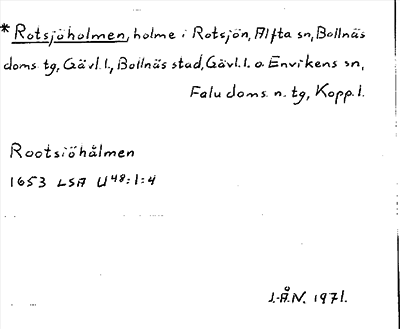 *Rotsjöholmen, holme i Rotsjön, Alfta sn, Bollnäs
doms. tg, Gävl. l., Bollnäs stad, Gävl. l. o. Envikens sn,
Falu doms. n. tg, Kopp. l.
Rootsiöhålmen
1653 LSA U48:1:4
J.-Å.N. 1971.